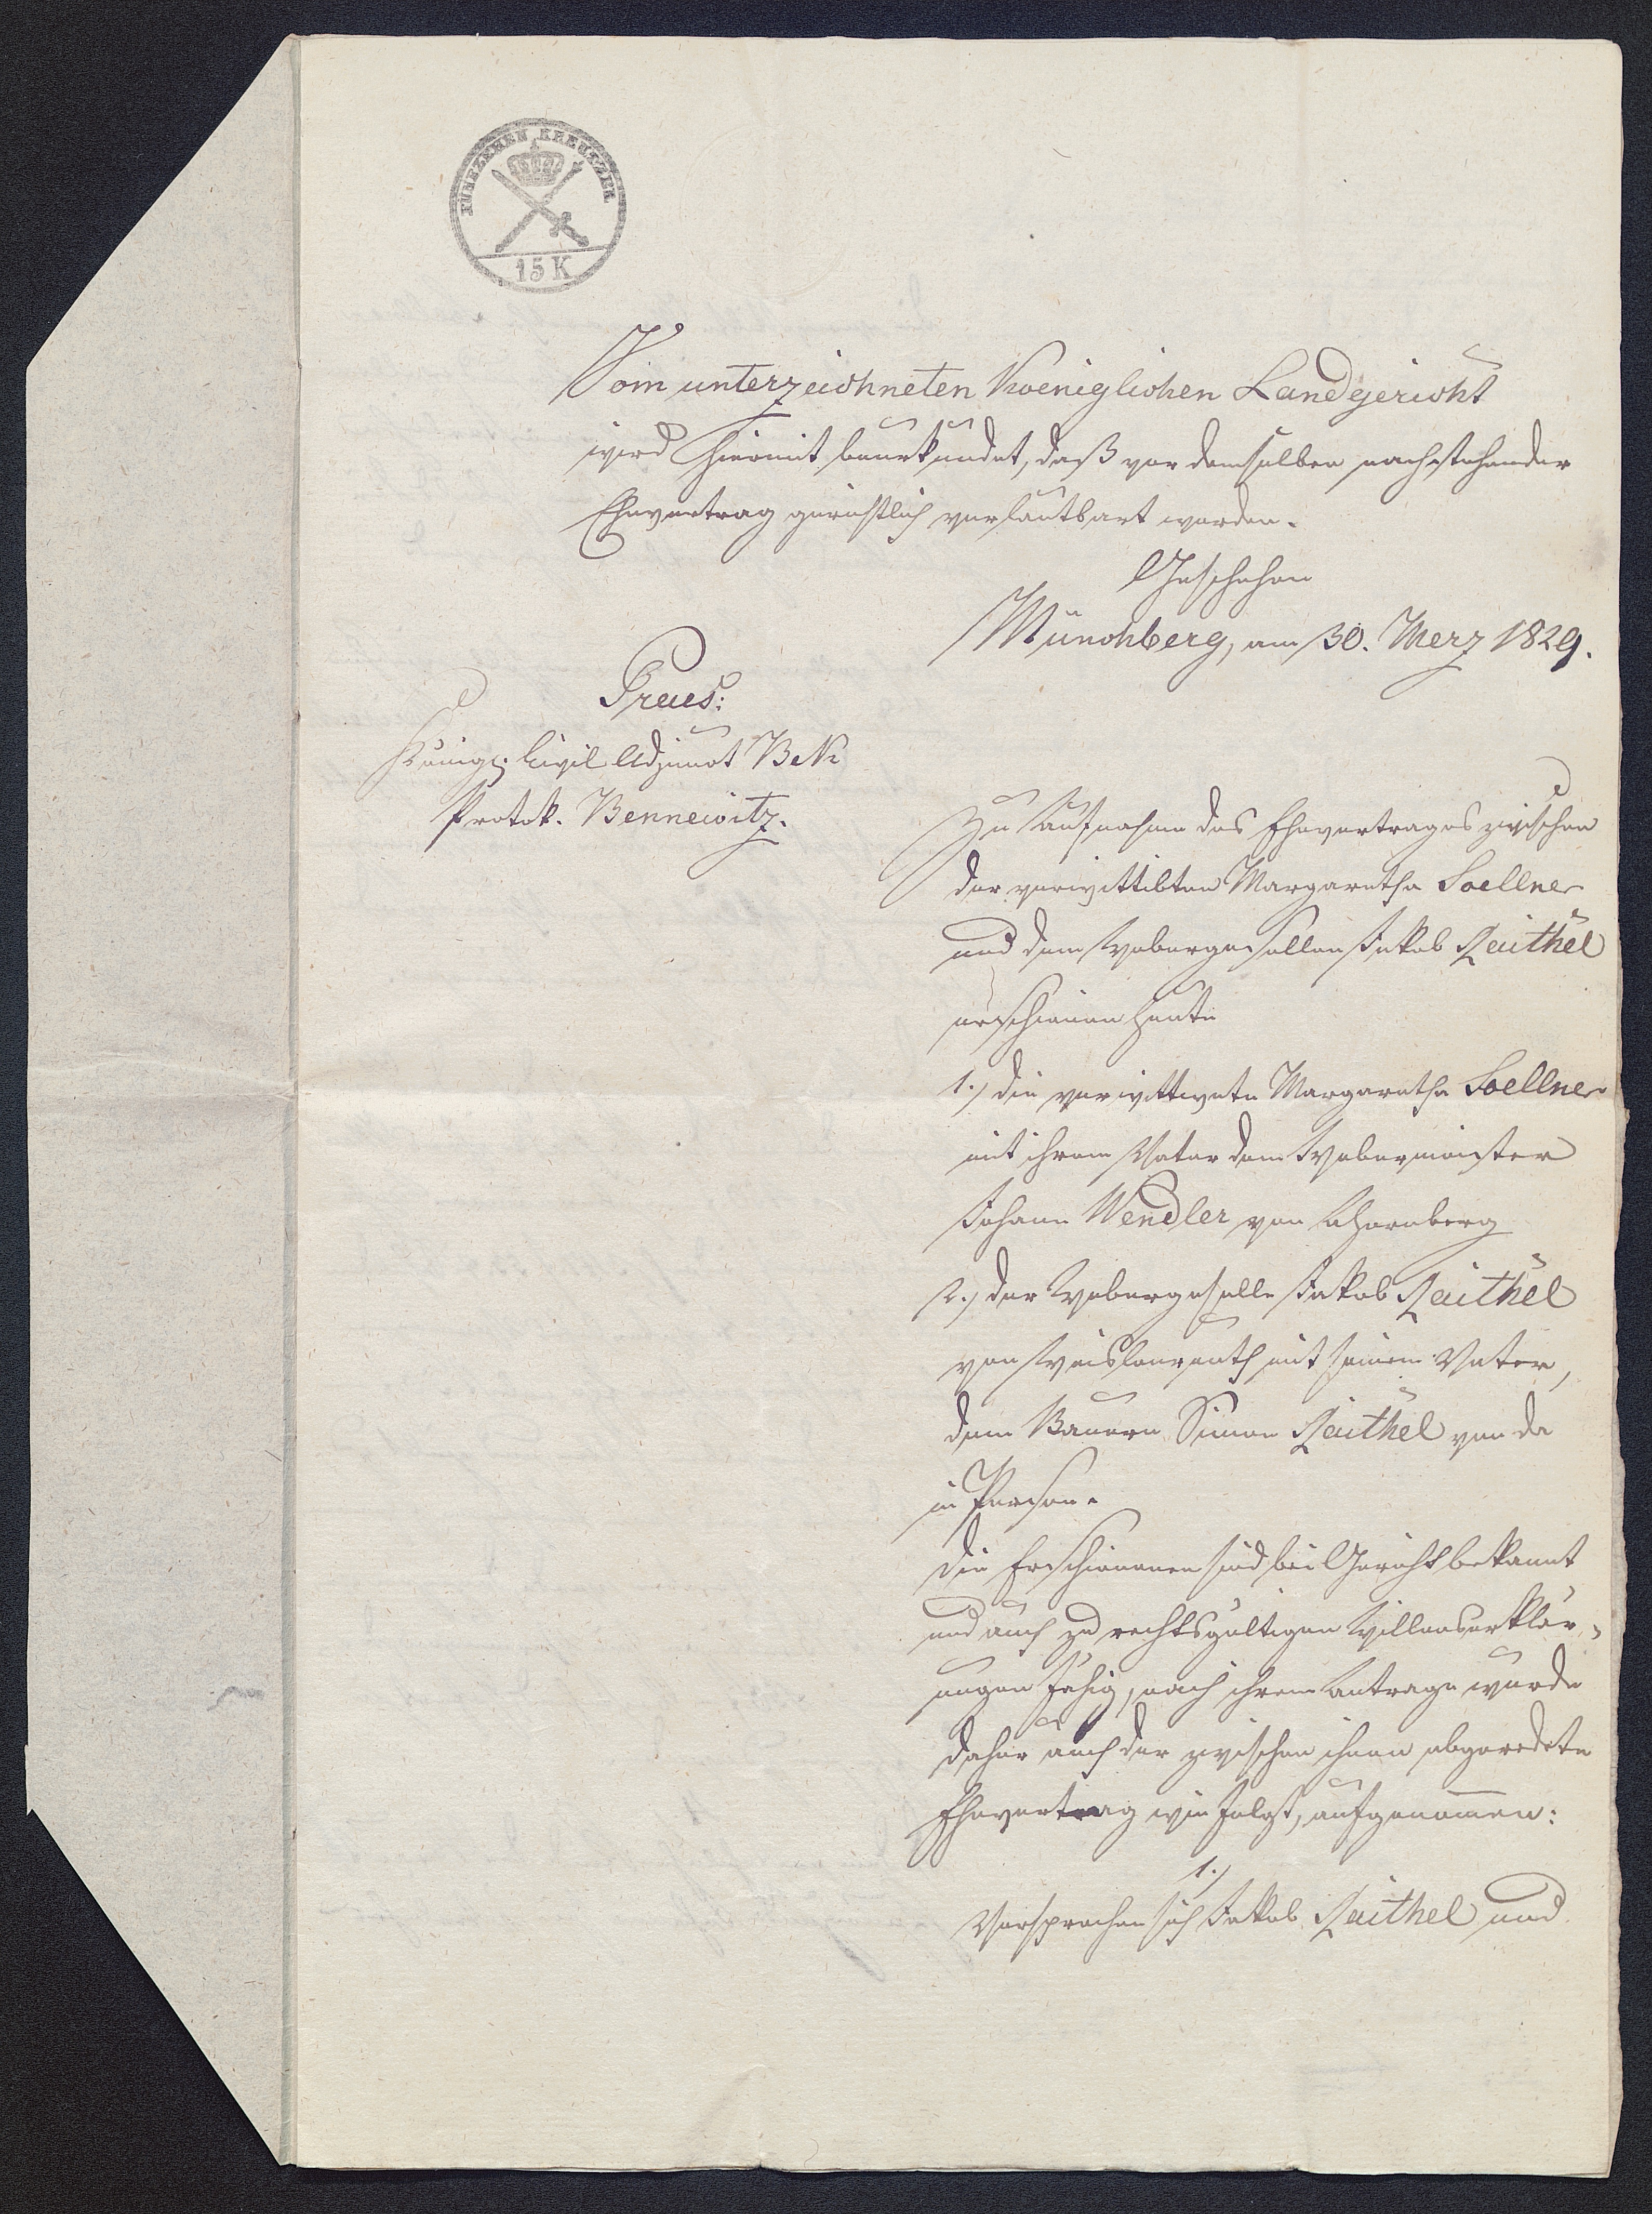 FÜNFZEHEN KREUTZER
15 K
Vom unterzeichneten Koeniglichen Landgericht
wird hiermit beurkundet, daß vor demselben nachstehender
Ehevertrag gerichtlich verlautbart worden.
Geschehen
Münchberg, am 30. Merz 1829.
Praes:
Königl. Civil Adjunct Bek
Protok. Bennewitz.
Zu Aufnahme des Ehevertrages zwischen
der verwittibten Margaretha Soellner
und dem Webergesellen Jakob Raithel
erschienen heute
1.) die verwittwete Margaretha Soellner
mit ihrem Vater dem Webermeister
Johann Wendler von Ahornberg
2.) der Webergeselle Jakob Raithel
von Weislenreuth mit seinem Vater,
dem Bauern Simon Raithel von da
in Person.
Die Erschienenen sind bei Gericht bekannt
und auch zu rechtsgültigen Willenserklär-
ungen fähig, nach ihrem Antrage wurde
daher auch der zwischen ihnen abgeredete
Ehevertrag wie folgt, aufgenom̅en:
1.)
Versprechen sich Jakob Raithel und